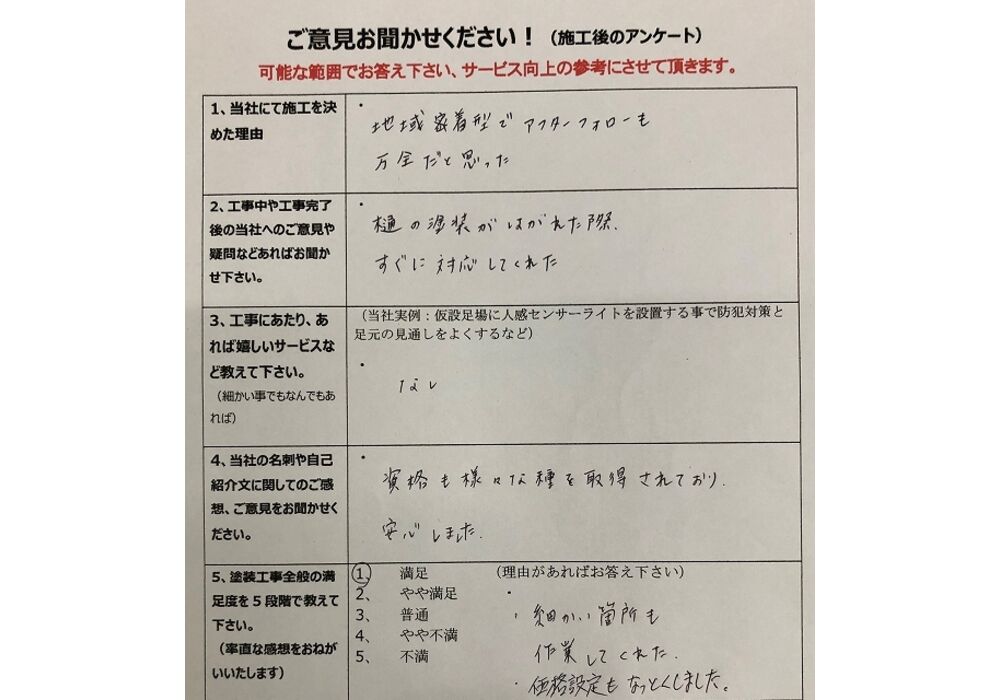 ご意見お聞かせください！（施工後のアンケート）
可能な範囲でお答え下さい、サービス向上の参考にさせて頂きます。
1、当社にて施工を決
めた理由
・
地域密着型でアフターフォローも
万全だと思った
2、工事中や工事完了
後の当社へのご意見や
疑問などあればお聞か
せ下さい。
・
樋の塗装がはがれた際、
すぐに対応してくれた
3、工事にあたり、あ
れば嬉しいサービスな
ど教えて下さい。
（細かい事でもなんでもあ
れば）
（当社実例：仮設足場に人感センサーライトを設置する事で防犯対策と
足元の見通しをよくするなど）
・
なし
4、当社の名刺や自己
紹介文に関してのご感
想、ご意見をお聞かせく
ださい。
・
資格も様々な種を取得されており、
安心しました。
5、塗装工事全般の満
足度を5段階で教えて
下さい。
（率直な感想をおねが
いいたします）
1、 満足
2、 やや満足
3、 普通
4、 やや不満
5、 不満
（理由があればお答え下さい）
・
・細かい箇所も
作業してくれた。
・価格設定もなっとくしました。